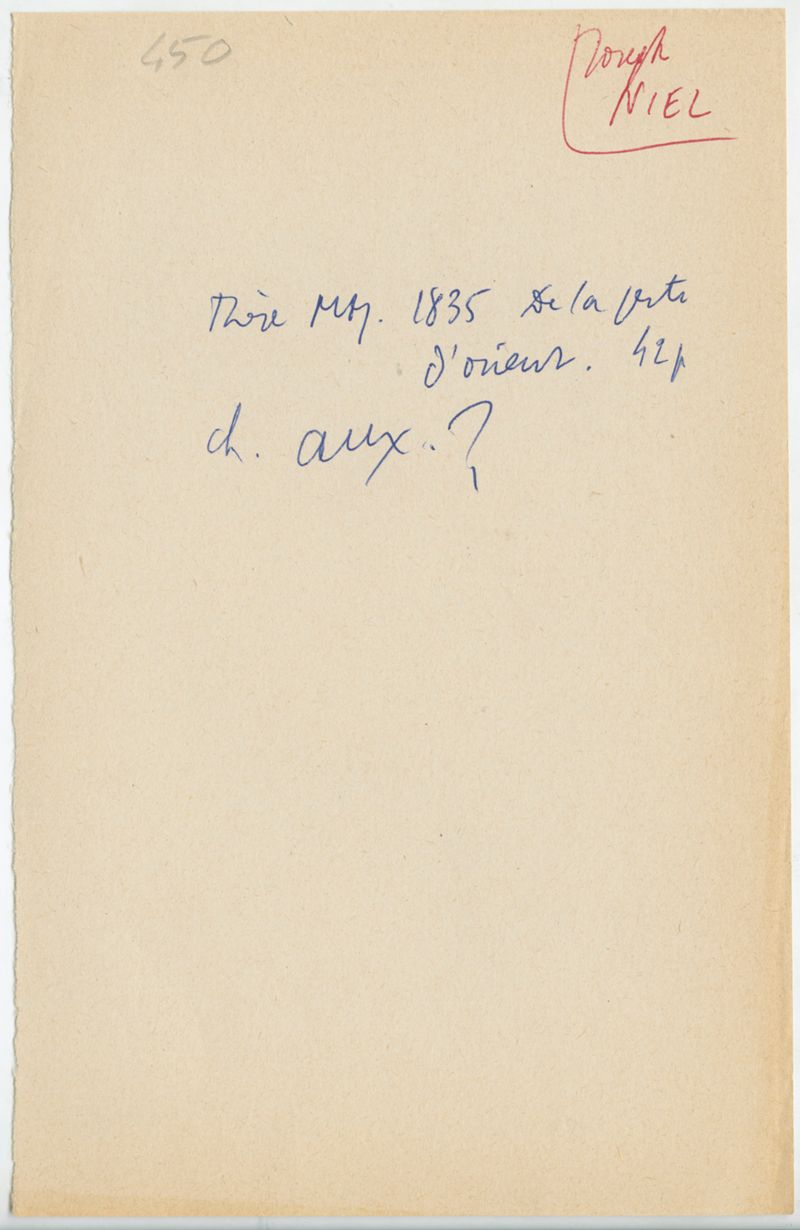 450
Joseph
NIEL
Thèse MM. 1835 De la peste
d'orient. 42p
ch. aux. ?